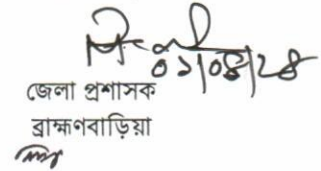 ০১/০৪/২৪
জেলা প্রশাসক
ব্রাহ্মণবাড়িয়া